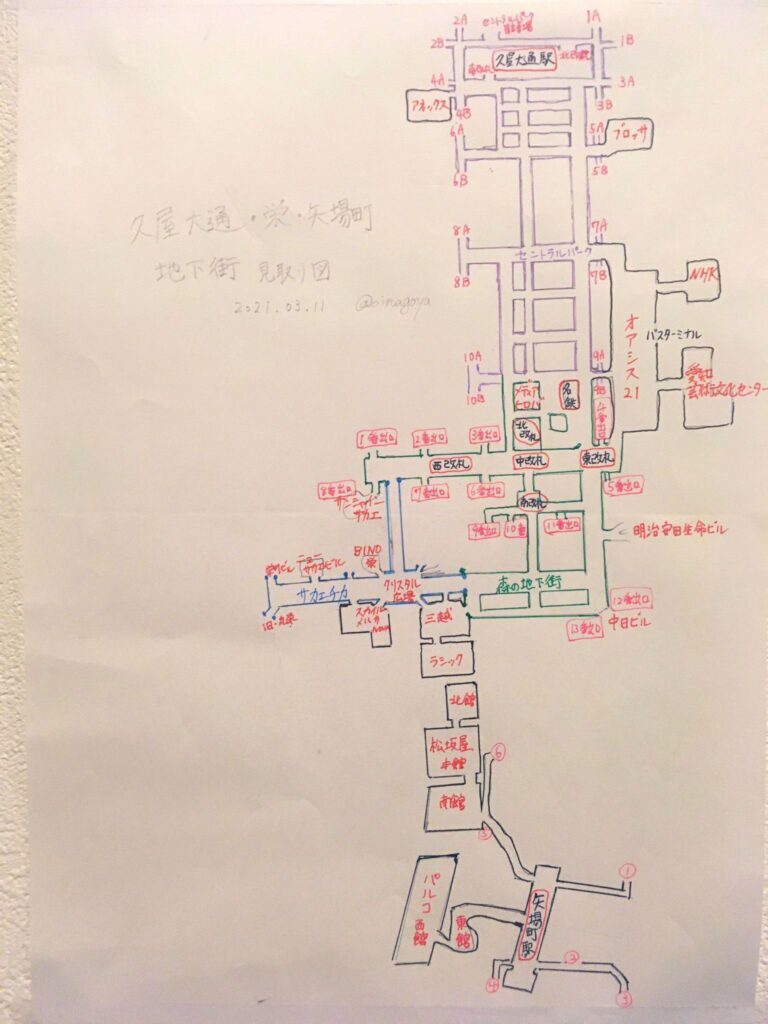 2A
セントラルパーク
駐車場
1A
2B
1B
久屋大通駅
北改札
南改札
4A
3A
アネックス
4B
3B
6A
5A
プロッサ
6B
5B
久屋大通・栄・矢場町
地下街 見取り図
2021.03.11 @oinagoya
8A
7A
セントラルパーク
8B
7B
NHK
オアシス21
バスターミナル
10A
9A
10B
9B
愛知
芸術文化センター
メディア
ヒロバ
名鉄
4番出口
北改札
1番出口
2番出口
3番出口
西改札
中改札
東改札
8番出口
7番出口
6番出口
5番出口
サンシャイン
サカエ
南改札
9番出口
10番
11番出口
明治安田生命ビル
BINO
栄
ニュー
サカエビル
サカエチカ
クリスタル
広場
森の地下街
旧・丸栄
スカイル
メルサ
三越
12番出口
中日ビル
13番出口
ラシック
北館
松坂屋
本館
⑥
南館
⑤
①
パルコ
西館
東館
矢場町駅
④
②
③